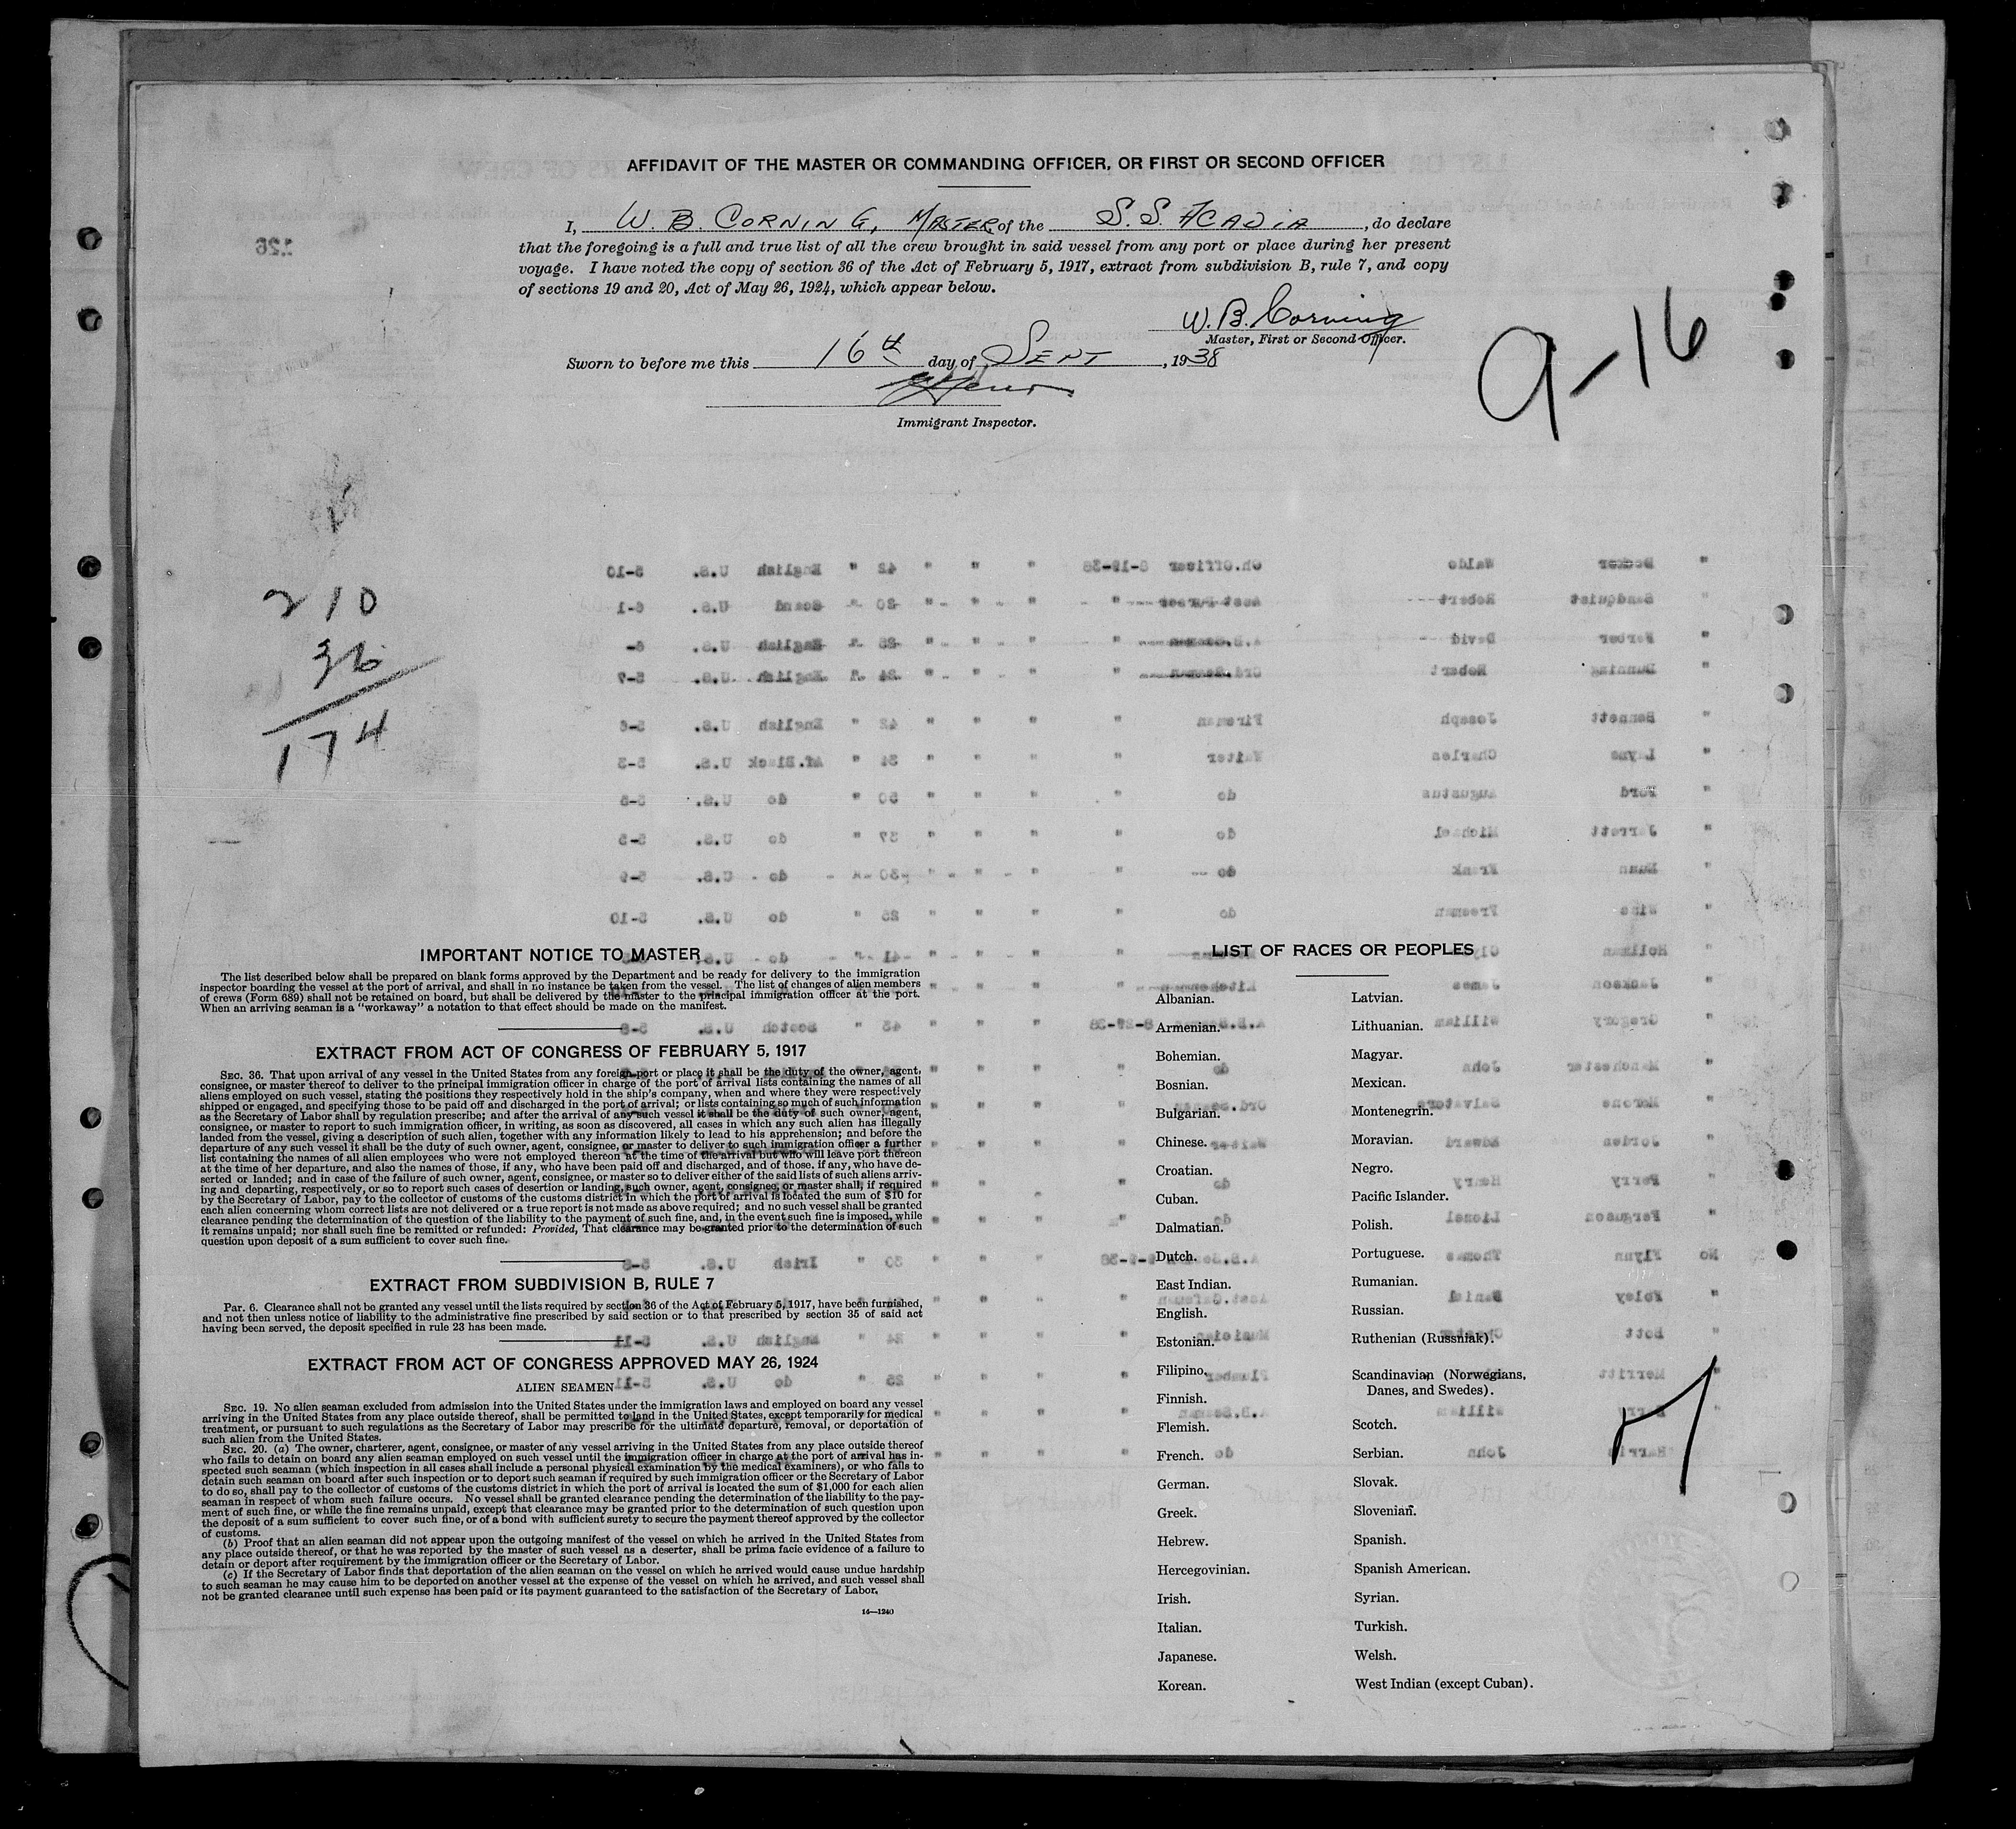 AFFIDAVIT OF THE MASTER OR COMMANDING OFFICER, OR FIRST OR SECOND OFFICER
I, W. B. CORNING, MASTER, of the S.S. ACADIA, do declare
that the foregoing is a full and true list of all the crew brought in said vessel from any port or place during her present
voyage. I have noted the copy of section 36 of the Act of February 5, 1917, extract from subdivision B, rule 7, and copy
of sections 19 and 20, Act of May 26, 1924, which appear below.
W. B. Corning
Master, First or Second Officer.
Sworn to before me this 16th day of SEPT, 1938
Immigrant Inspector.
9-16
126
210
36
174
IMPORTANT NOTICE TO MASTER
The list described below shall be prepared on blank forms approved by the Department and be ready for delivery to the immigration
inspector boarding the vessel at the port of arrival, and shall in no instance be taken from the vessel. The list of changes of alien members
of crews (Form 689) shall not be retained on board, but shall be delivered by the master to the principal immigration officer at the port.
When an arriving seaman is a "workaway" a notation to that effect should be made on the manifest.
EXTRACT FROM ACT OF CONGRESS OF FEBRUARY 5, 1917
SEC. 36. That upon arrival of any vessel in the United States from any foreign port or place it shall be the duty of the owner, agent,
consignee, or master thereof to deliver to the principal immigration officer in charge of the port of arrival lists containing the names of all
aliens employed on such vessel, stating the positions they respectively hold in the ship's company, when and where they were respectively
shipped or engaged, and specifying those to be paid off and discharged in the port of arrival; or lists containing so much of such information
as the Secretary of Labor shall by regulation prescribe; and after the arrival of any such vessel it shall be the duty of such owner, agent,
consignee, or master to report to such immigration officer, in writing, as soon as discovered, all cases in which any such alien has illegally
landed from the vessel, giving a description of such alien, together with any information likely to lead to his apprehension; and before the
departure of any such vessel it shall be the duty of such owner, agent, consignee, or master to deliver to such immigration officer a further
list containing the names of all alien employees who were not employed thereon at the time of the arrival but who will leave port thereon
at the time of her departure, and also the names of those, if any, who have been paid off and discharged, and of those. if any, who have de-
serted or landed; and in case of the failure of such owner, agent, consignee, or master so to deliver either of the said lists of such aliens arriv-
ing and departing, respectively, or so to report such cases of desertion or landing, such owner, agent, consignee, or master shall, if required
by the Secretary of Labor, pay to the collector of customs of the customs district in which the port of arrival is located the sum of $10 for
each alien concerning whom correct lists are not delivered or a true report is not made as above required; and no such vessel shall be granted
clearance pending the determination of the question of the liability to the payment of such fine, and, in the event such fine is imposed, while
it remains unpaid; nor shall such fine be remitted or refunded: Provided, That clearance may be granted prior to the determination of such
question upon deposit of a sum sufficient to cover such fine.
EXTRACT FROM SUBDIVISION B, RULE 7
Par. 6. Clearance shall not be granted any vessel until the lists required by section 36 of the Act of February 5, 1917, have been furnished,
and not then unless notice of liability to the administrative fine prescribed by said section or to that prescribed by section 35 of said act
having been served, the deposit specified in rule 23 has been made.
EXTRACT FROM ACT OF CONGRESS APPROVED MAY 26, 1924
ALIEN SEAMEN
SEC. 19. No alien seaman excluded from admission into the United States under the immigration laws and employed on board any vessel
arriving in the United States from any place outside thereof, shall be permitted to land in the United States, except temporarily for medical
treatment, or pursuant to such regulations as the Secretary of Labor may prescribe for the ultimate departure, removal, or deportation of
such alien from the United States.
SEC. 20. (a) The owner, charterer, agent, consignee, or master of any vessel arriving in the United States from any place outside thereof
who fails to detain on board any alien seaman employed on such vessel until the immigration officer in charge at the port of arrival has in-
spected such seaman (which inspection in all cases shall include a personal physical examination by the medical examiners), or who fails to
detain such seaman on board after such inspection or to deport such seaman if required by such immigration officer or the Secretary of Labor
to do so, shall pay to the collector of customs of the customs district in which the port of arrival is located the sum of $1,000 for each alien
seaman in respect of whom such failure occurs. No vessel shall be granted clearance pending the determination of the liability to the pay-
ment of such fine, or while the fine remains unpaid, except that clearance may be granted prior to the determination of such question upon
the deposit of a sum sufficient to cover such fine, or of a bond with sufficient surety to secure the payment thereof approved by the collector
of customs.
(b) Proof that an alien seaman did not appear upon the outgoing manifest of the vessel on which he arrived in the United States from
any place outside thereof, or that he was reported by the master of such vessel as a deserter, shall be prima facie evidence of a failure to
detain or deport after requirement by the immigration officer or the Secretary of Labor.
(c) If the Secretary of Labor finds that deportation of the alien seaman on the vessel on which he arrived would cause undue hardship
to such seaman he may cause him to be deported on another vessel at the expense of the vessel on which he arrived, and such vessel shall
not be granted clearance until such expense has been paid or its payment guaranteed to the satisfaction of the Secretary of Labor.
16—1240
LIST OF RACES OR PEOPLES
Albanian.
Armenian.
Bohemian.
Bosnian.
Bulgarian.
Chinese.
Croatian.
Cuban.
Dalmatian.
Dutch.
East Indian.
English.
Estonian.
Filipino.
Finnish.
Flemish.
French.
German.
Greek.
Hebrew.
Hercegovinian.
Irish.
Italian.
Japanese.
Korean.
Latvian.
Lithuanian.
Magyar.
Mexican.
Montenegrin.
Moravian.
Negro.
Pacific Islander.
Polish.
Portuguese.
Rumanian.
Russian.
Ruthenian (Russniak).
Scandinavian (Norwegians,
Danes, and Swedes).
Scotch.
Serbian.
Slovak.
Slovenian.
Spanish.
Spanish American.
Syrian.
Turkish.
Welsh.
West Indian (except Cuban).